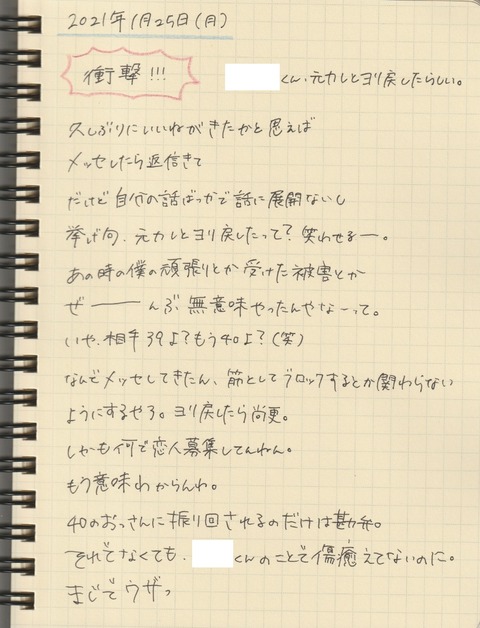 2021年1月25日(月)
衝撃!!!
くん、元カレとヨリ戻したらしい。
久しぶりにいいねがきたかと思えば
メッセしたら返信きて
だけど自分の話ばっかで話に展開ないし
挙げ句、元カレとヨリ戻したって?笑わせるー。
あの時の僕の頑張りとか受けた被害とか
ぜ――んぶ無意味やったんやなーって。
いや、相手39よ?もう40よ?(笑)
なんでメッセしてきたん、筋としてブロックするとか関わらない
ようにするやろ。ヨリ戻したら尚更。
しかも何で恋人募集してんねん。
もう意味わからんわ。
40のおっさんに振り回されるのだけは勘弁。
それでなくても、
くんのことで傷癒えてないのに。
まじでウザっ